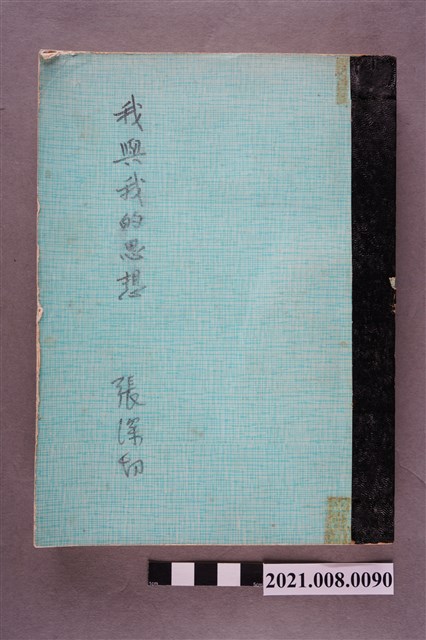 我與我的思想
張深切
2021.008.0090